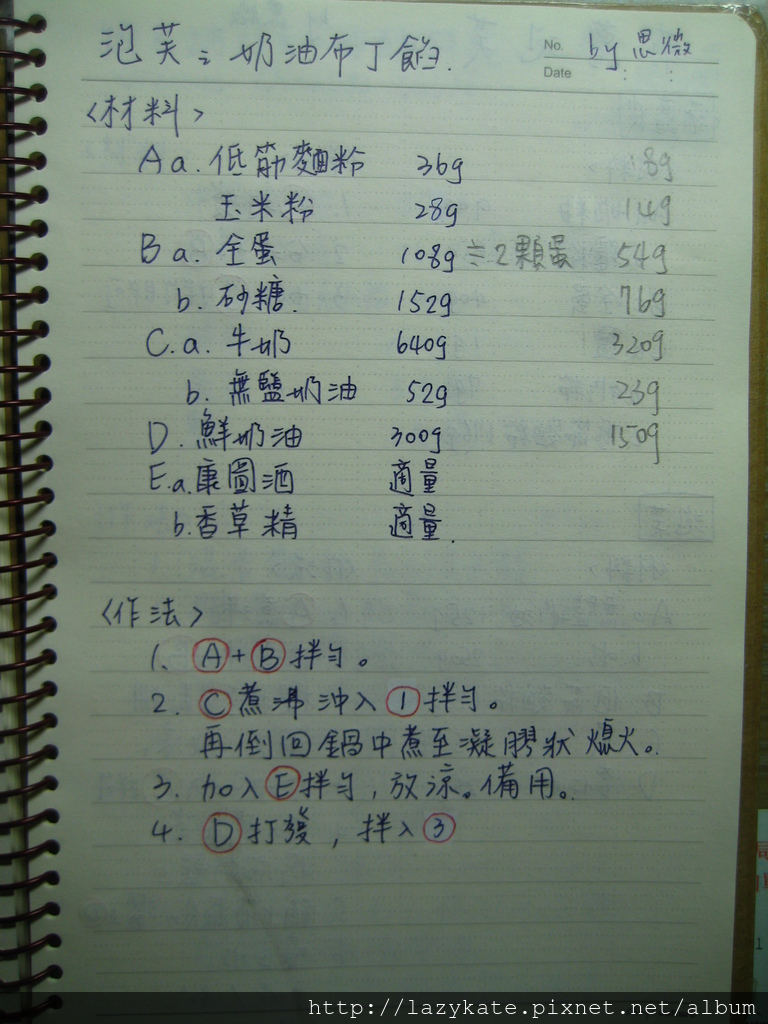 泡芙之奶油布丁餡.
No. by 思微
Date : :
<材料>
A a. 低筋麵粉 36g 18g
玉米粉 28g 14g
B a. 全蛋 108g ≒2顆蛋 54g
b. 砂糖. 152g 76g
C.a. 牛奶 640g 320g
b. 無鹽奶油 52g 23g
D. 鮮奶油 300g 150g
E.a.康圖酒 適量
b.香草精 適量.
<作法>
1. Ⓐ+Ⓑ拌勻。
2. Ⓒ煮沸沖入①拌勻。
再倒回鍋中煮至凝膠狀熄火。
3. 加入Ⓔ拌勻,放涼。備用。
4. Ⓓ打發,拌入③
http://lazykate.pixnet.net/album